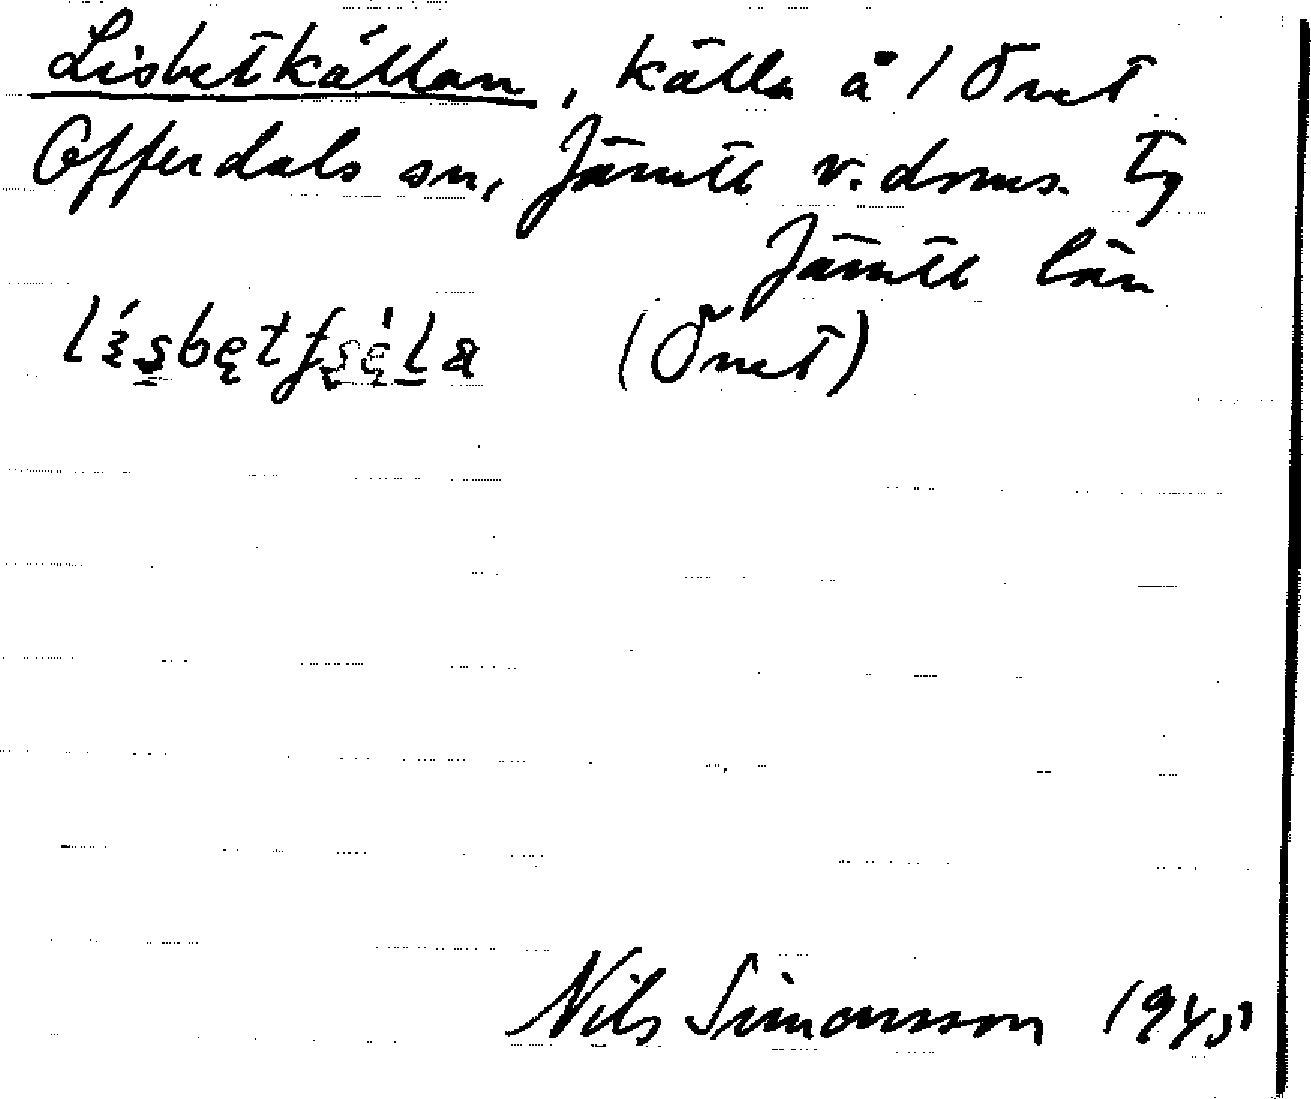 Lisbetkällan, källa å 1 Önet
Offerdals sn, Jämtl v. doms. tg
Jämtl län
(Önet)
Nils Simonsson 1945